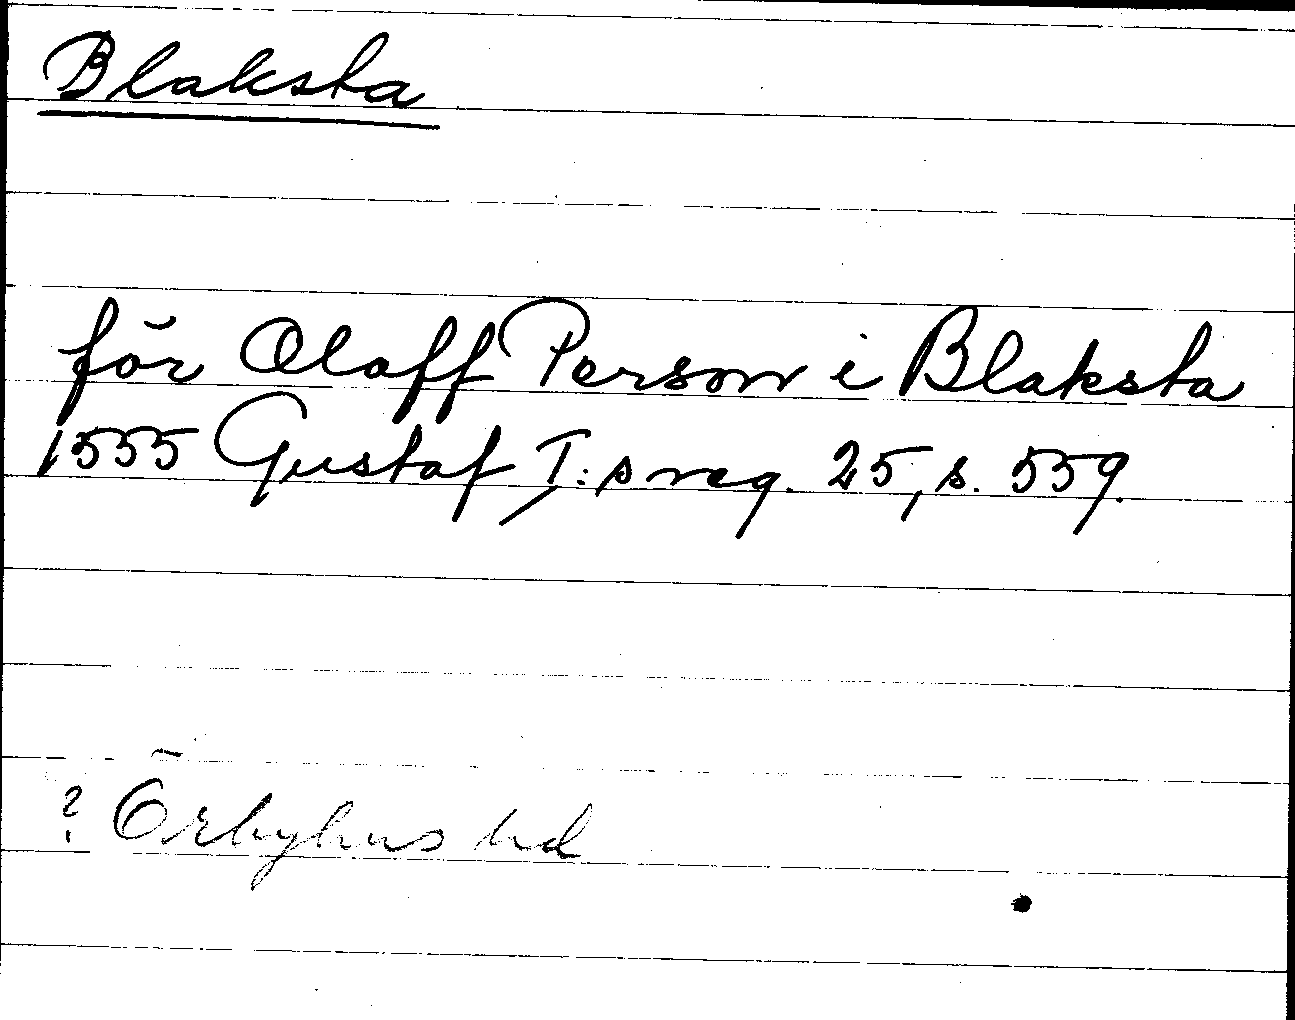 Blaksta
för Olaff Person i Blaksta
1555 Gustaf I:s reg. 25, s. 559.
? Örbyhus hd